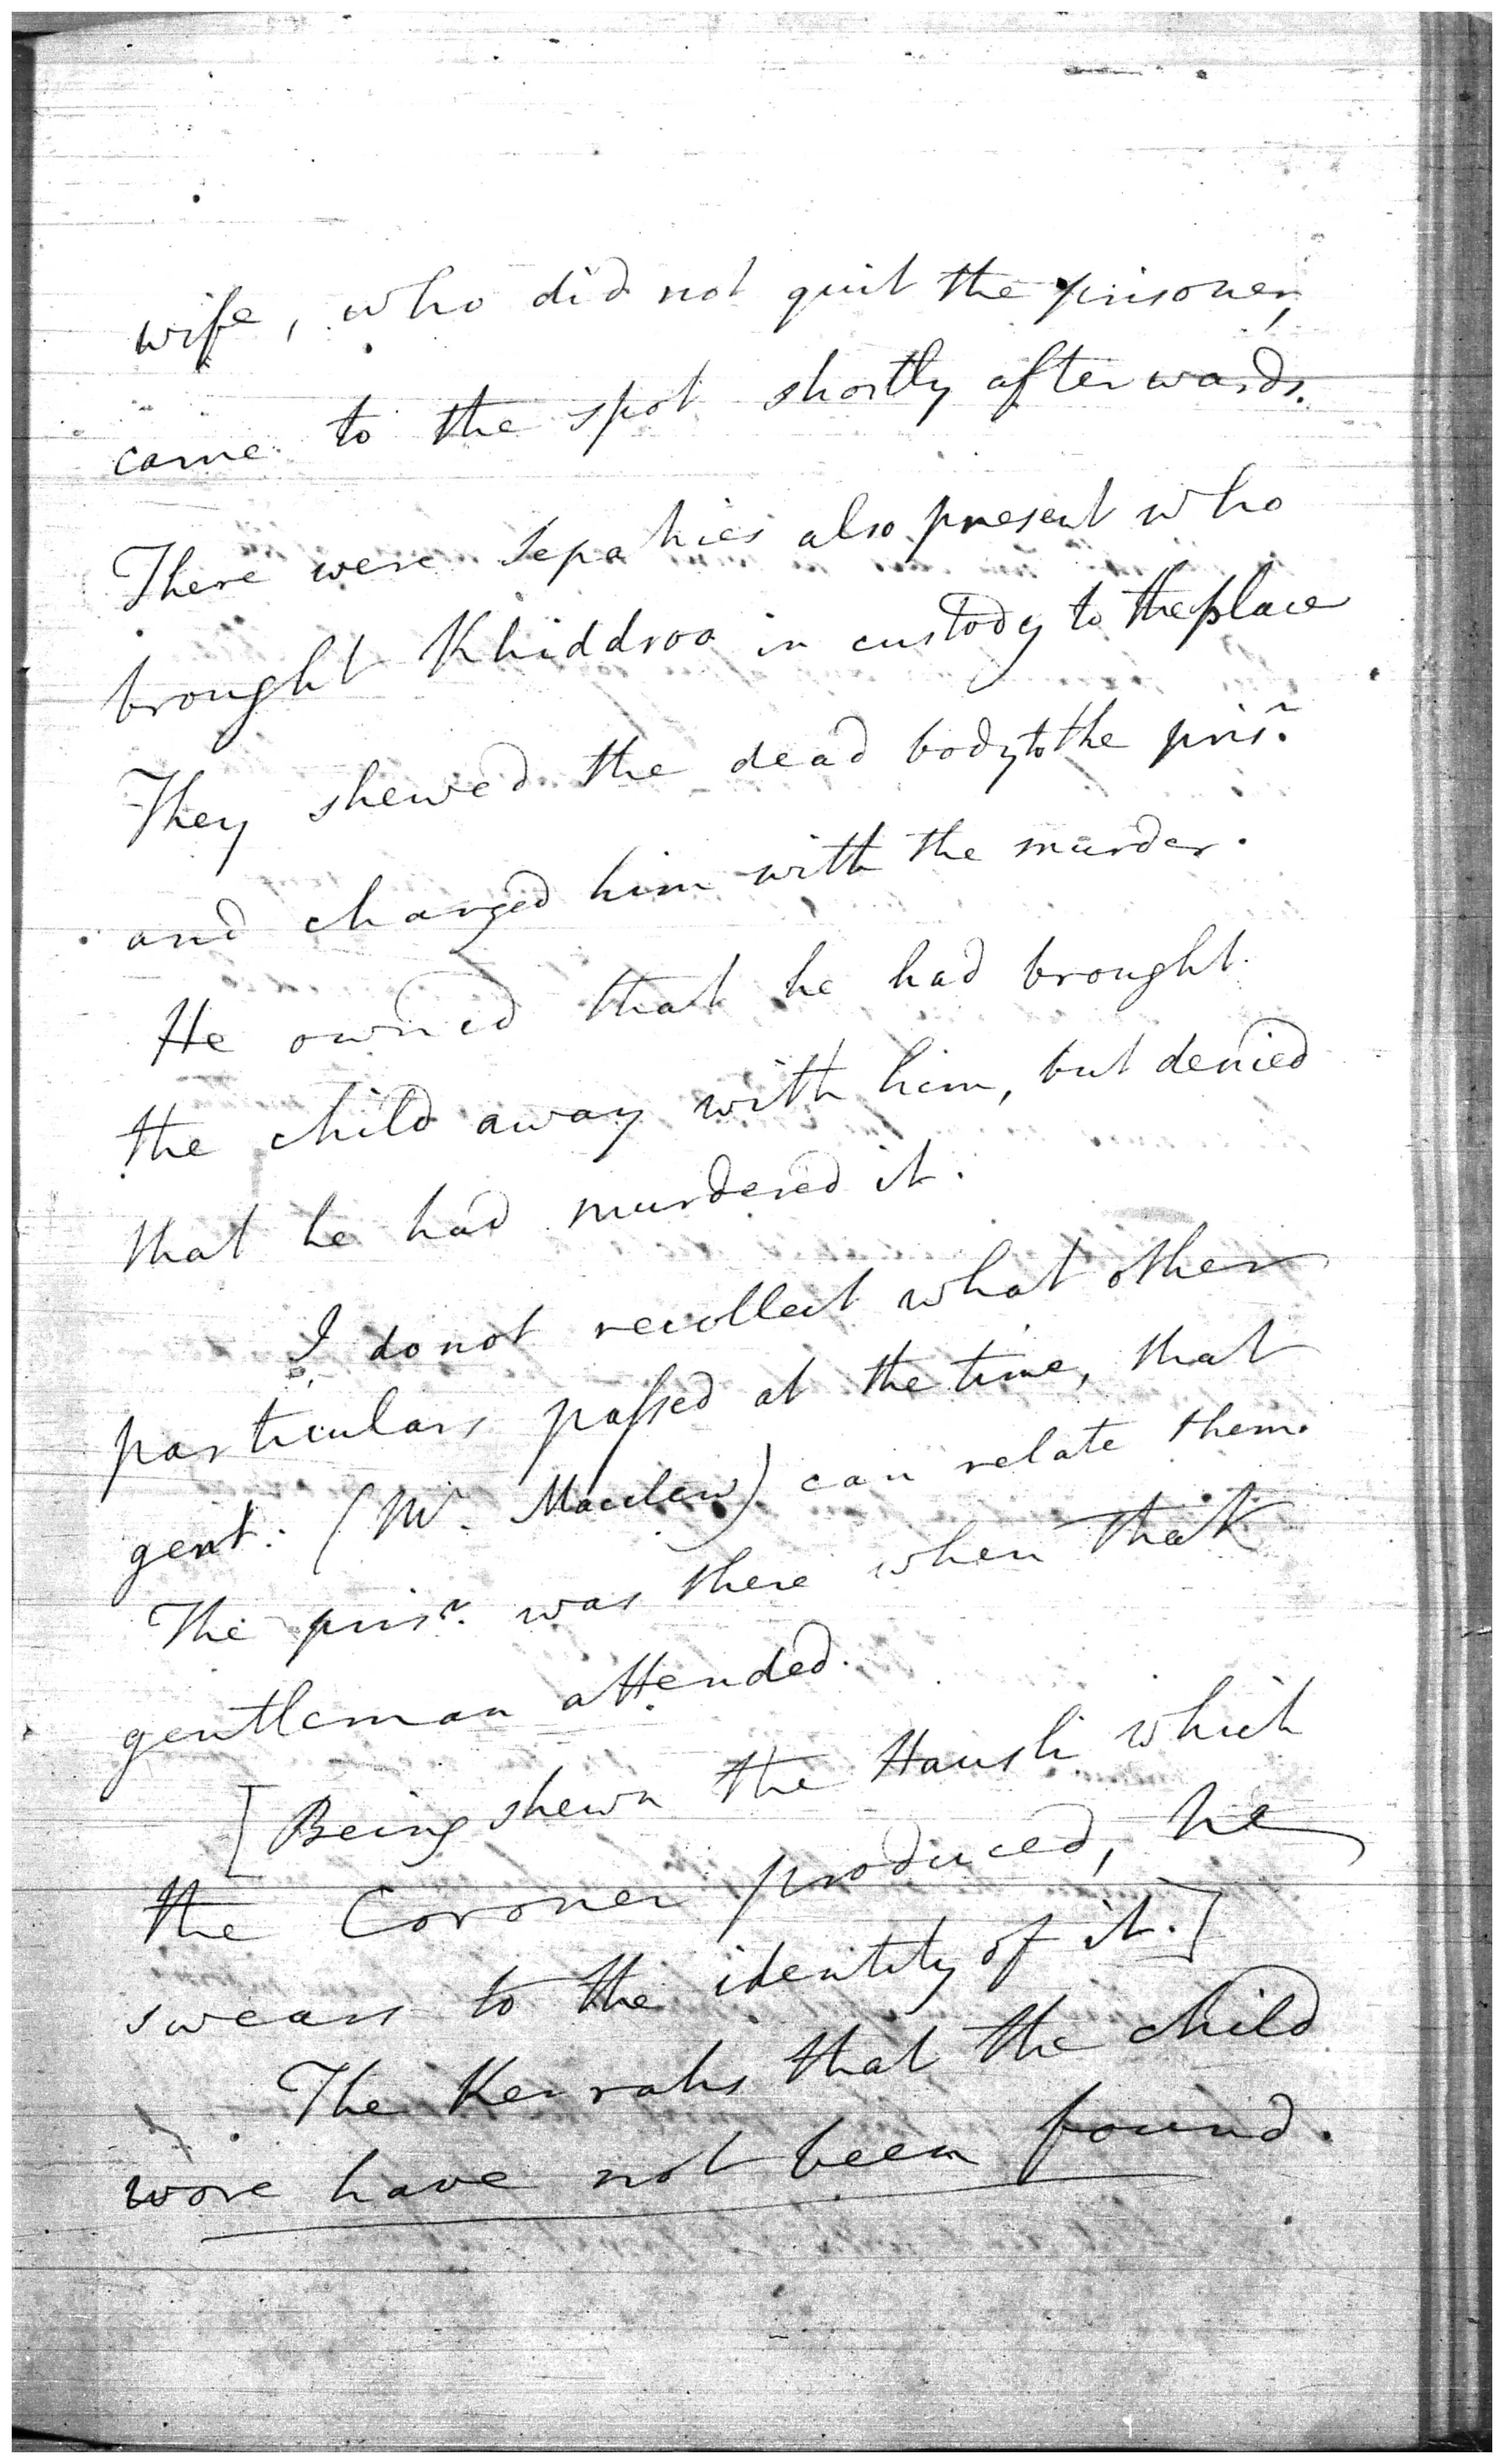 wife, who did not quit the prisoner,
came to the spot shortly afterwards.
There were Sepahies also present who
brought Khiddroo in custody to the place
They shewed the dead body to the prisr.
and charged him with the murder.
He owned that he had brought
the child away with him, but denied
that he had murdered it.
I do not recollect what other
particulars passed at the time, that
gent. (Mr. Maclew) can relate them.
The prisr. was there when that
gentleman attended.
[Being shewn the Hansli which
the Coroner produced, he
swears to the identity of it.]
The Kerrahs that the child
wore have not been found.